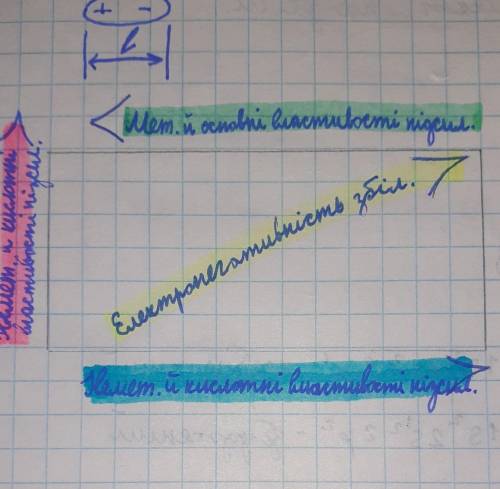 + -
l
Мет. й основні властивості підсил.
Немет. й кислотні
властивості підсил.
Електронегативність збіл.
Немет. й кислотні властивості підсил.